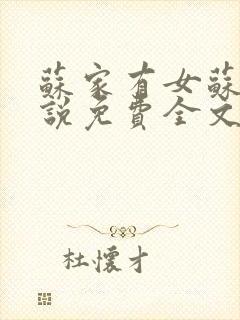 蘇家有女蘇
說免費全文
杜懷才